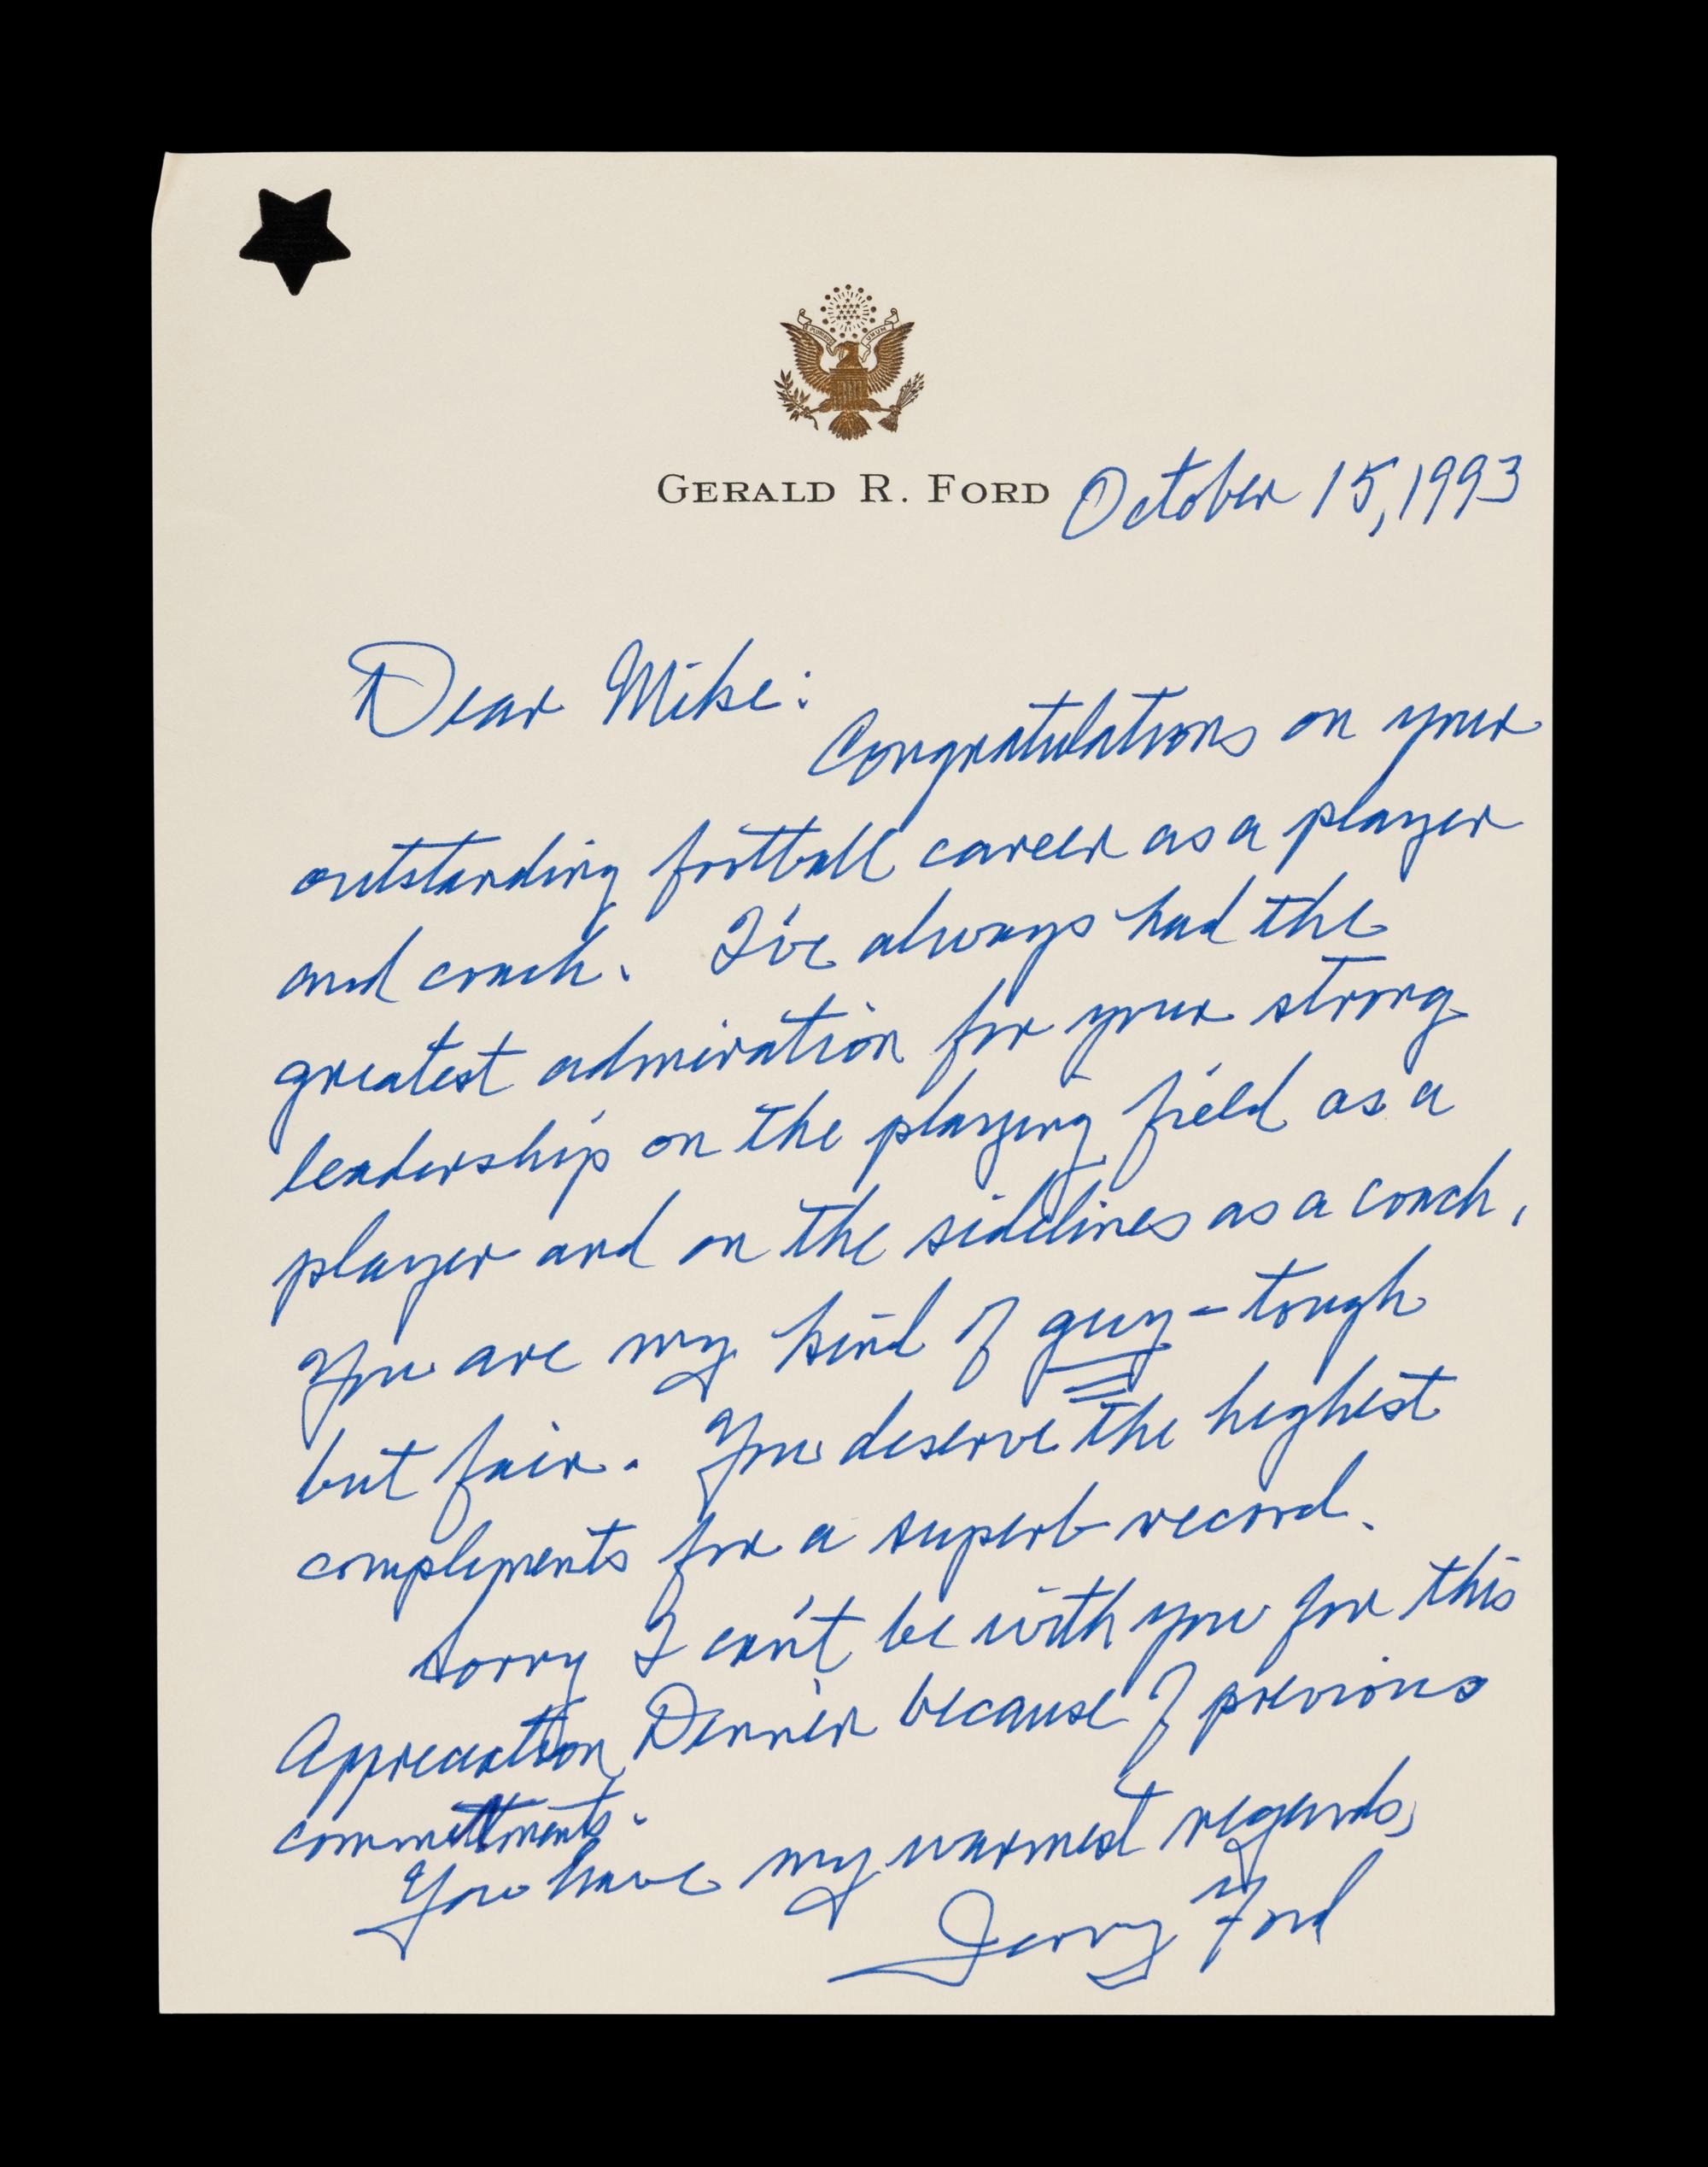 GERALD R. FORD
October 15, 1993
Dear Mike:
Congratulations on your
outstanding football career as a player
and coach. I've always had the
greatest admiration for your strong
leadership on the playing field as a
player and on the sidelines as a coach.
You are my kind of guy - tough
but fair. You deserve the highest
compliments for a superb record.
Sorry I can't be with you for this
Appreciation Dinner because of previous
committments.
You have my warmest regards,
Jerry Ford